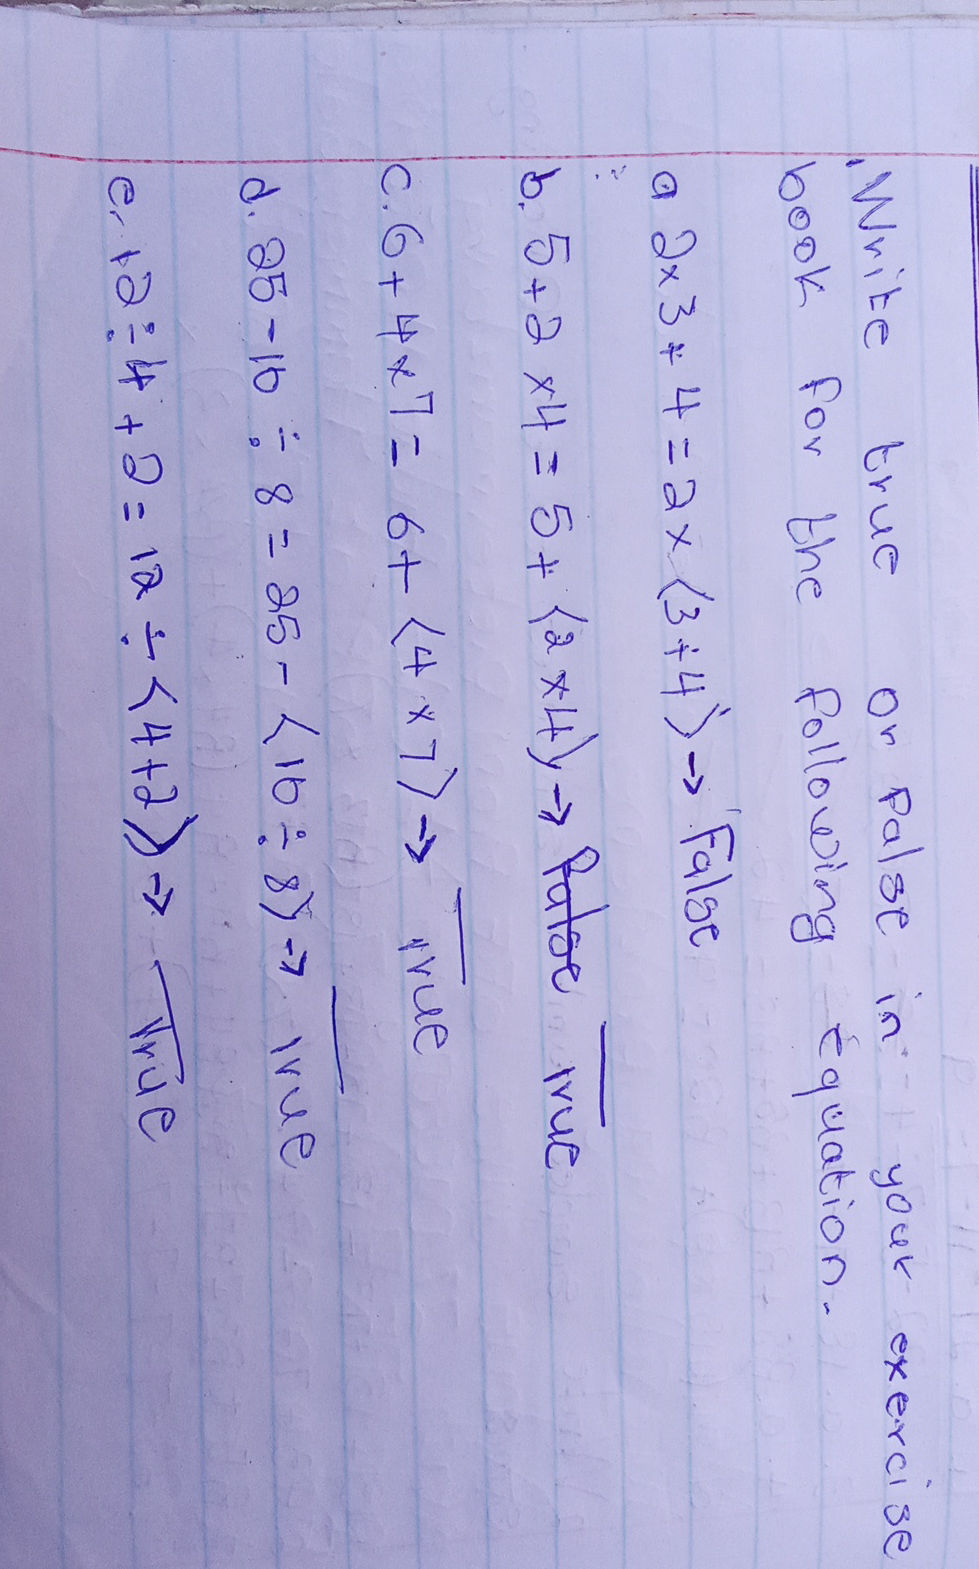 Write true or false in your exercise
book for the following equation.
a 2x3+4=2x(3+4)→False
b. 5+2x4=5+(2x4)→ False True
c. 6+4x7=6+(4x7)→ True
d. 25-16÷8=25-(16÷8)→ True
e. 12÷4+2=12÷(4+2)→ True